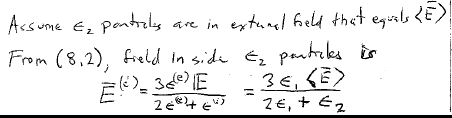 Assume ϵ₂ particles are in external field that equals <E̅>
From (8.2), field inside ϵ₂ particles is
E̅⁽ⁱ⁾ = 3ϵ⁽ᵉ⁾𝔼 / (2ϵ⁽ᵉ⁾ + ϵ⁽ⁱ⁾) = 3ϵ₁<E̅> / (2ϵ₁ + ϵ₂)